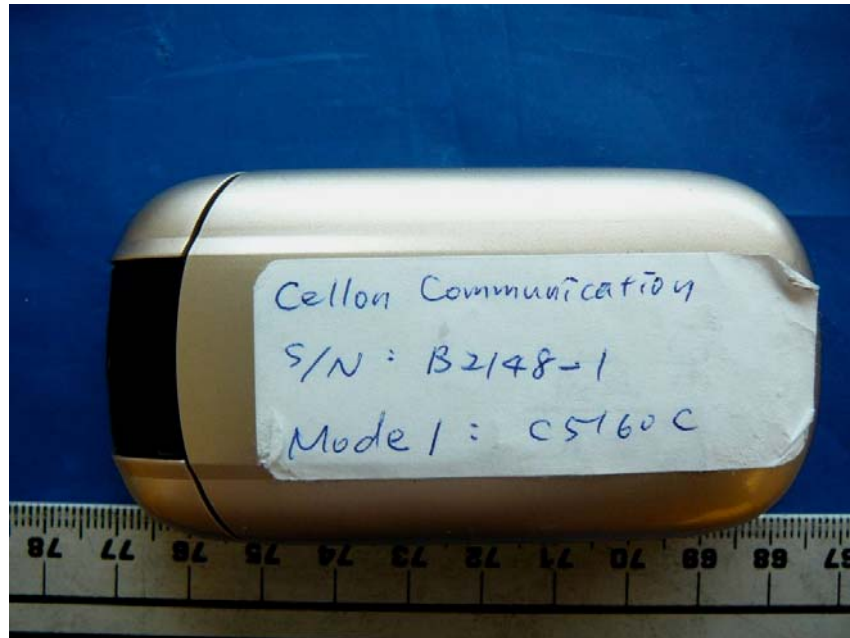 Cellon Communication
S/N: B2148-1
Model: C5160C
78 77 76 75 74 73 72 71 70 69 68 67